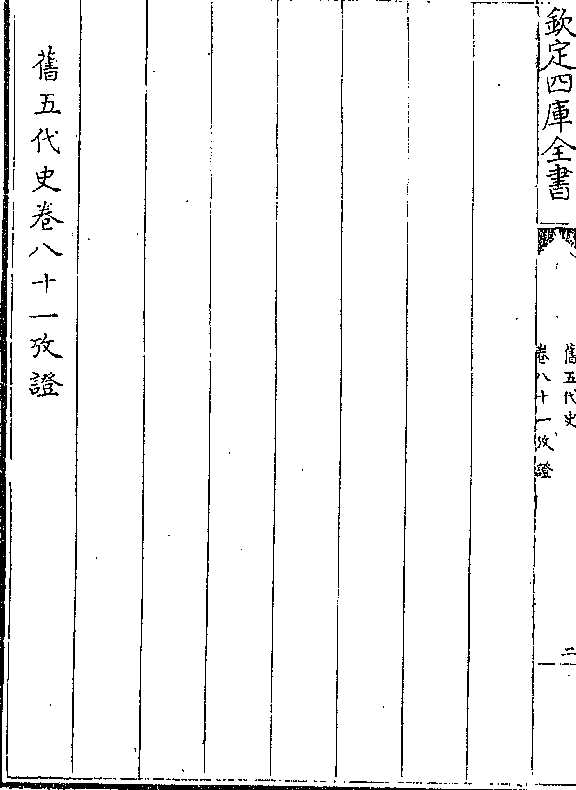 欽定四庫全書
舊五代史
卷八十一攷證
二
舊五代史卷八十一攷證